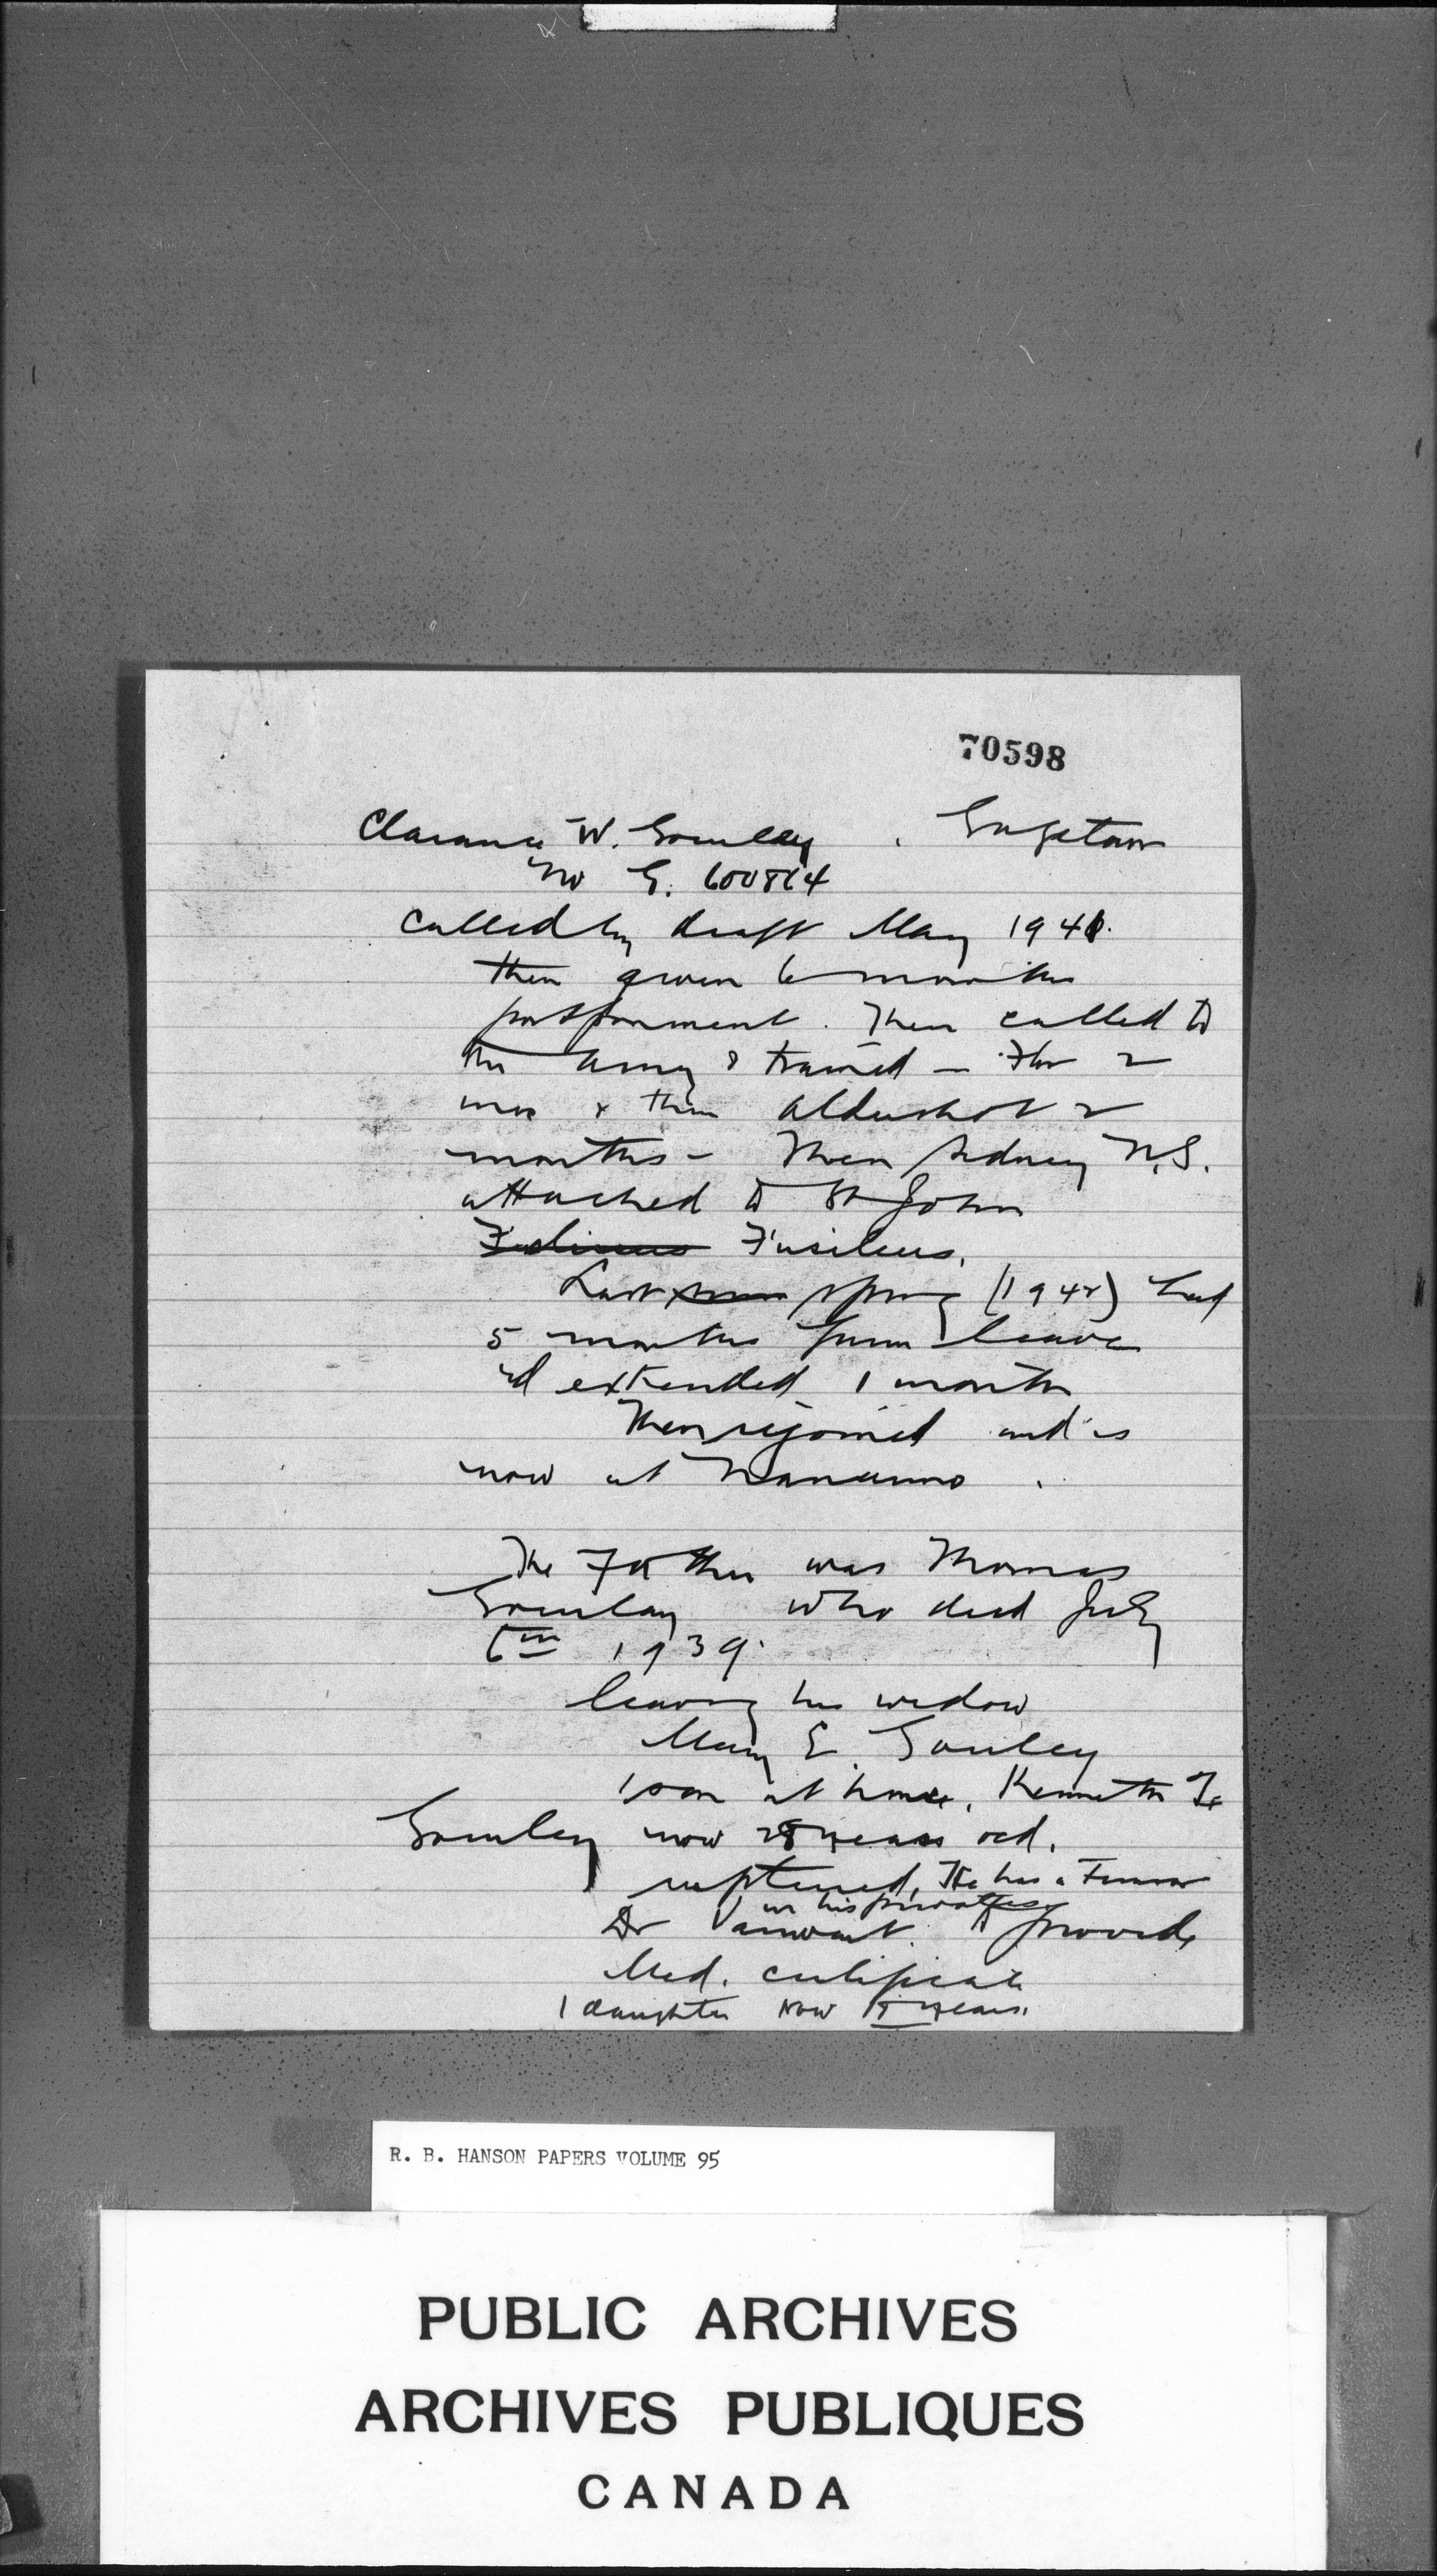 70598
Clarence W. Gourley . Gagetown
No G. 600864
Called by draft May 1941.
then given 6 months
postponment. Then called to
the Army & trained — Ftn 2
mos & then Aldershot 2
months — Then Sidney N.S.
attached to St John
Fusileers.
Last spring (1942) had
5 months farm leave
extended 1 month
Then rejoined and is
now at Nanaimo .
The Father was Thomas
Gourley who died July
6th 1939.
leaving his widow
Mary E. Gourley
1 son at home, Kenneth
Gourley now 28 years old.
ruptured, He has a Tumor
in his privates
Dr Vanwart. to provide
Med. certificate
1 daughter now years.
R. B. HANSON PAPERS VOLUME 95
PUBLIC ARCHIVES
ARCHIVES PUBLIQUES
CANADA